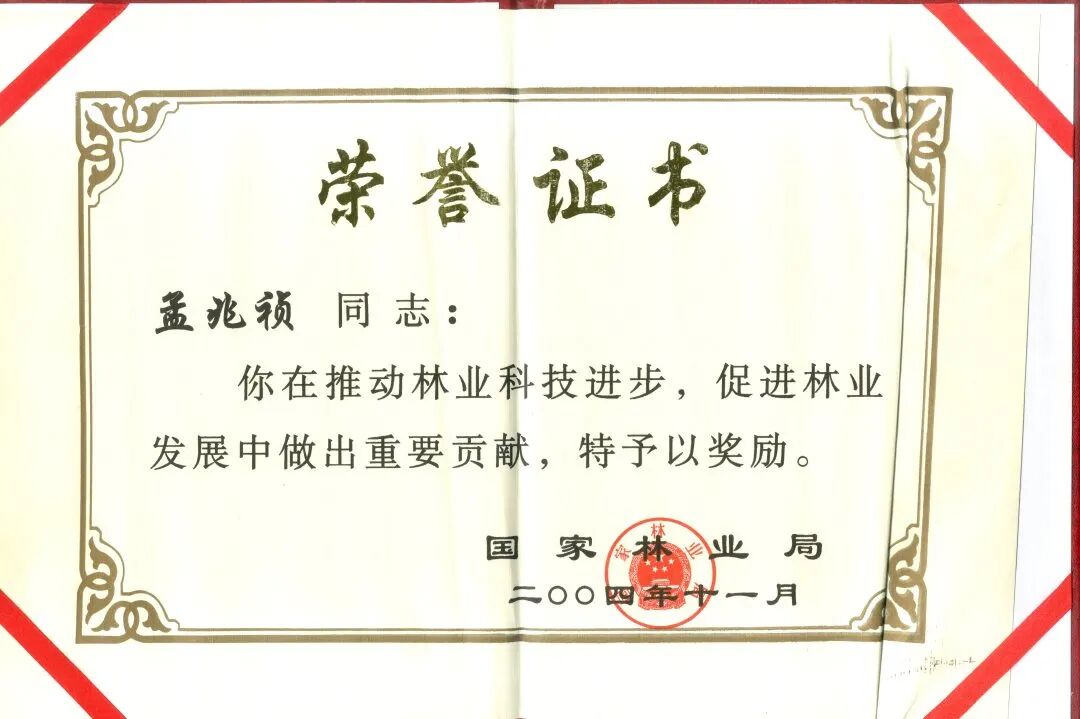 荣誉证书
孟兆祯 同志：
你在推动林业科技进步，促进林业
发展中做出重要贡献，特予以奖励。
国家林业局
二〇〇四年十一月